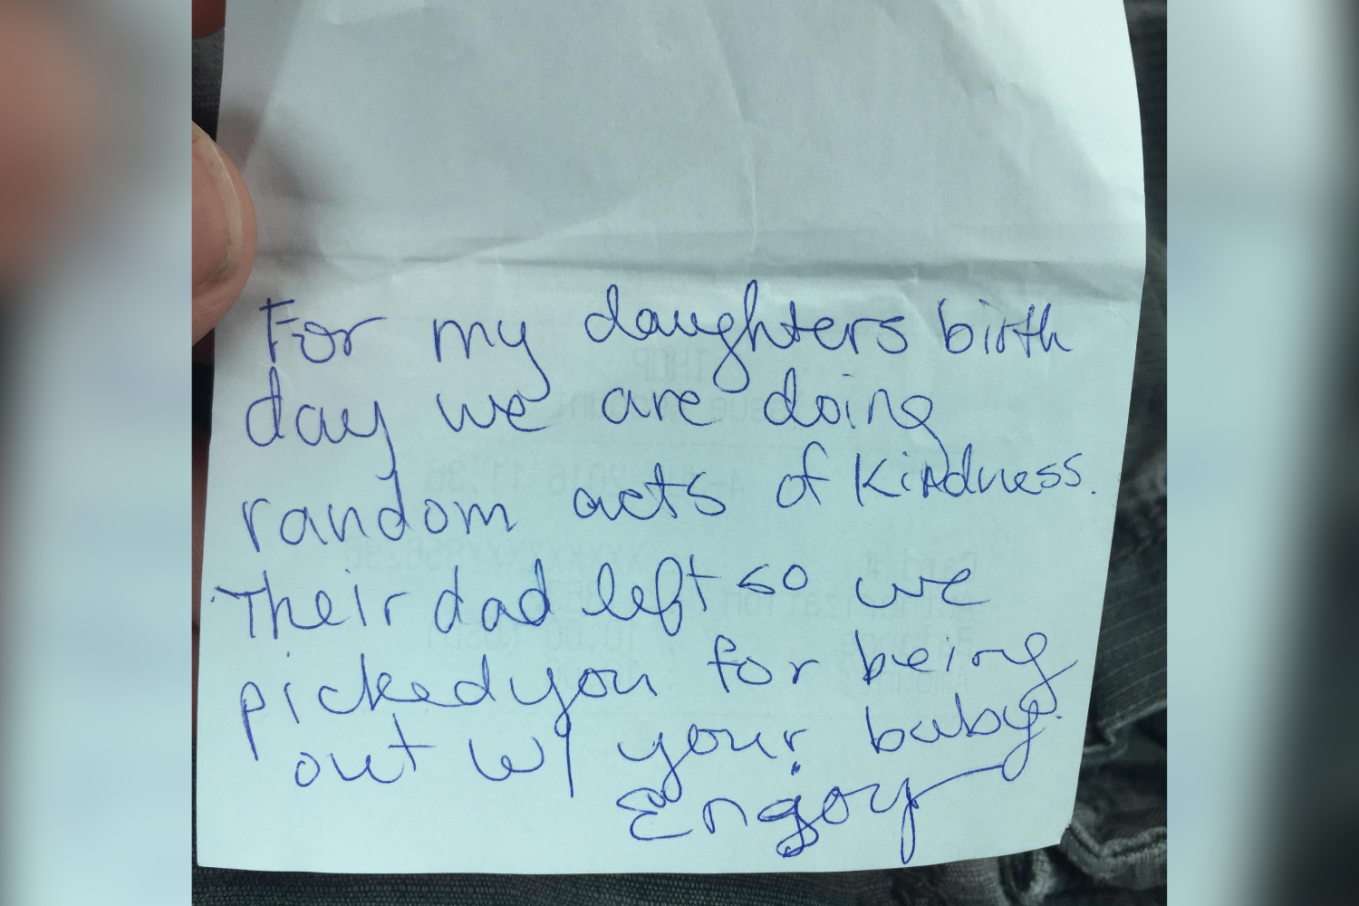 For my daughters birth
day we are doing
random acts of kindness.
Their dad left so we
picked you for being
out w/ your baby.
Enjoy